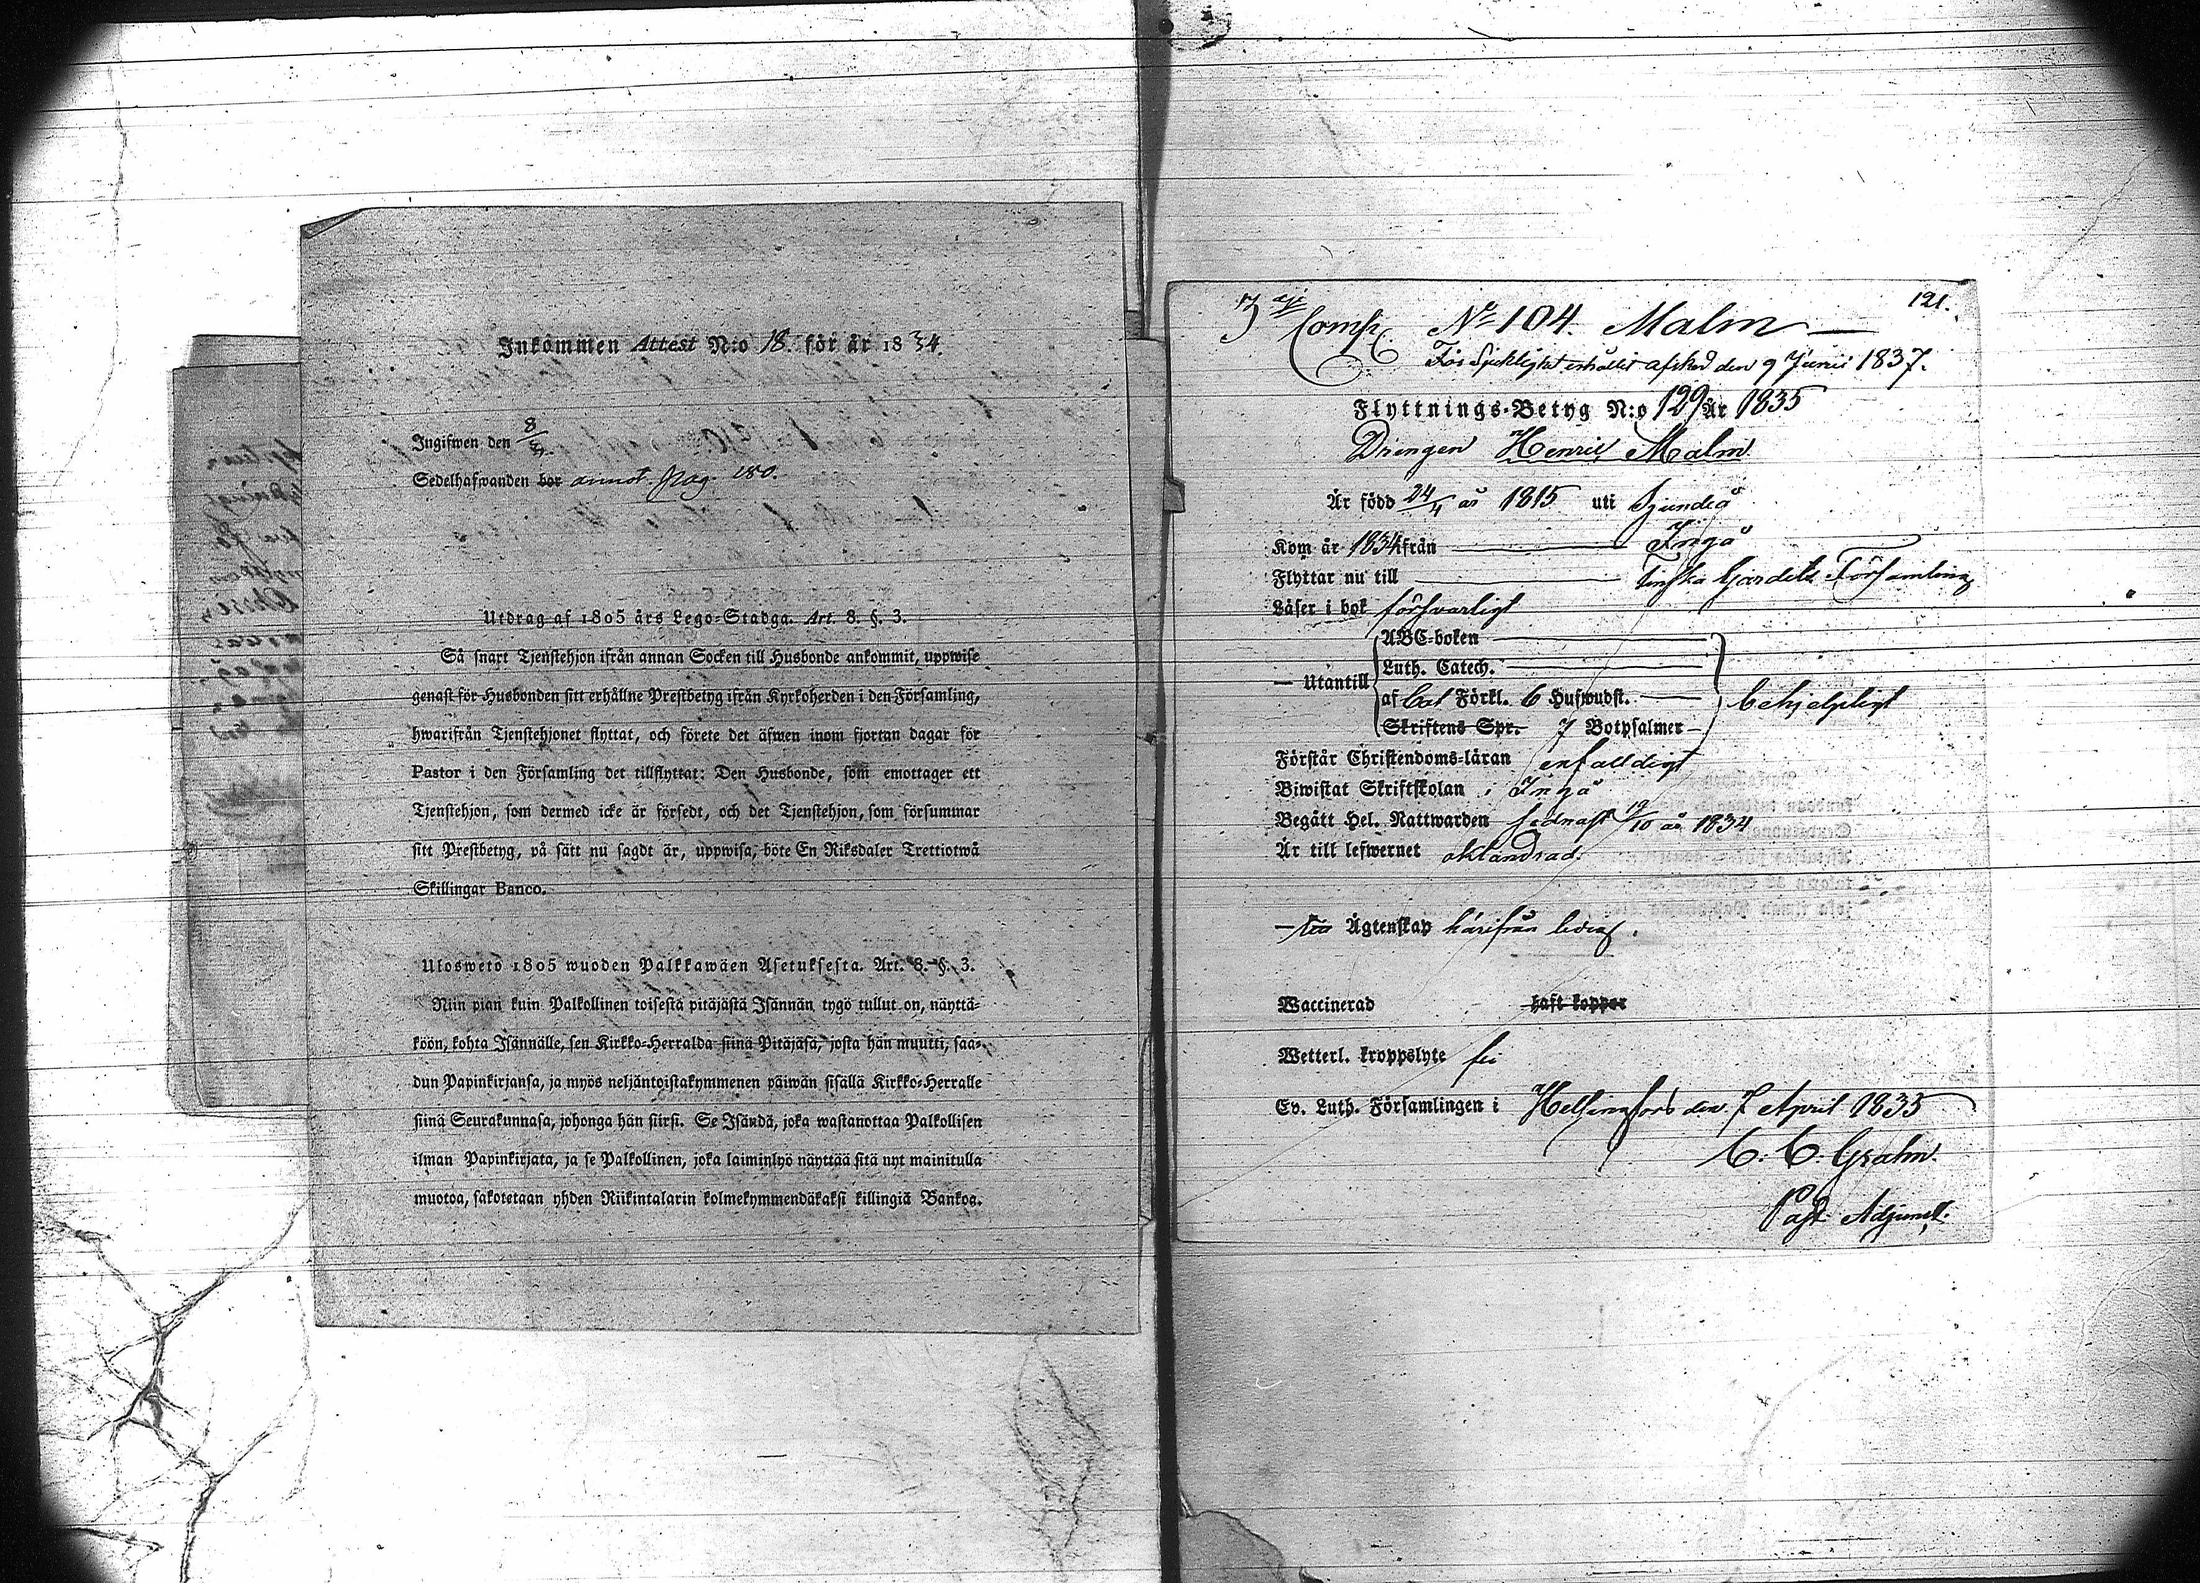 Inkommen Attest N:o 18. för år 1834.
Ingifwen den 8/5
Sedelhafwanden bor annot. pag. 180.
Utdrag af 1805 års Lego-Stadga. Art. 8. §. 3.
Så snart Tjenstehjon ifrån annan Socken till Husbonde ankommit, uppwise
genast för Husbonden sitt erhållne Prestbetyg ifrån Kyrkoherden i den Församling,
hwarifrån Tjenstehjonet flyttat, och förete det äfwen inom fjortan dagar för
Pastor i den Församling det tillflyttat: Den Husbonde, som emottager ett
Tjenstehjon, som dermed icke är försedt, och det Tjenstehjon, som försummar
sitt Prestbetyg, på sätt nu sagdt är, uppwisa, böte En Riksdaler Trettiotwå
Skillingar Banco.
Ulosweto 1805 wuoden Palkkawäen Asetuksesta. Art. 8. §. 3.
Niin pian kuin Palkollinen toisesta pitäjästä Isännän tygö tullut on, näyttä-
köön, kohta Isännälle, sen Kirkko-Herralda siinä Pitäjäsä, josta hän muutti, saa-
dun Papinkirjansa, ja myös neljäntoistakymmenen päiwän sisällä Kirkko-Herralle
siinä Seurakunnasa, johonga hän siirsi. Se Isändä, joka wastanottaa Palkollisen
ilman Papinkirjata, ja se Palkollinen, joka laiminlyö näyttää sitä nyt mainitulla
muotoa, sakotetaan yhden Riikintalarin kolmekymmendäkaksi killingiä Bankoa.
121.
3dje Comp. No 104. Malm
För Sjuklighet erhållit afsked den 9 Junii 1837.
Flyttnings-Betyg N:o 129 År 1835
Drengen Henric Malm
Är född 24/4 år 1815 uti Sjundeå
Kom år 1834 från Ingå
Flyttar nu till Finska Gardets Församling
Läser i bok försvarligt
ABC-boken
Luth. Catech.
— Utantill af Cat Förkl. 6 Hufwudst. behjelpligt
Skriftens Spr. 7 Botpsalmer
Förstår Christendoms-läran enfaldigt
Biwistat Skriftskolan i Ingå
Begått Hel. Nattwarden sednast 19/10 år 1834
Är till lefwernet oklandrad.
— Ägtenskap härifrån ledig.
Waccinerad haft koppor
Wetterl. kroppslyte fri
Ev. Luth. Församlingen i Helsingfors den 7 April 1835
C. C. Grahn.
Past Adjunct.